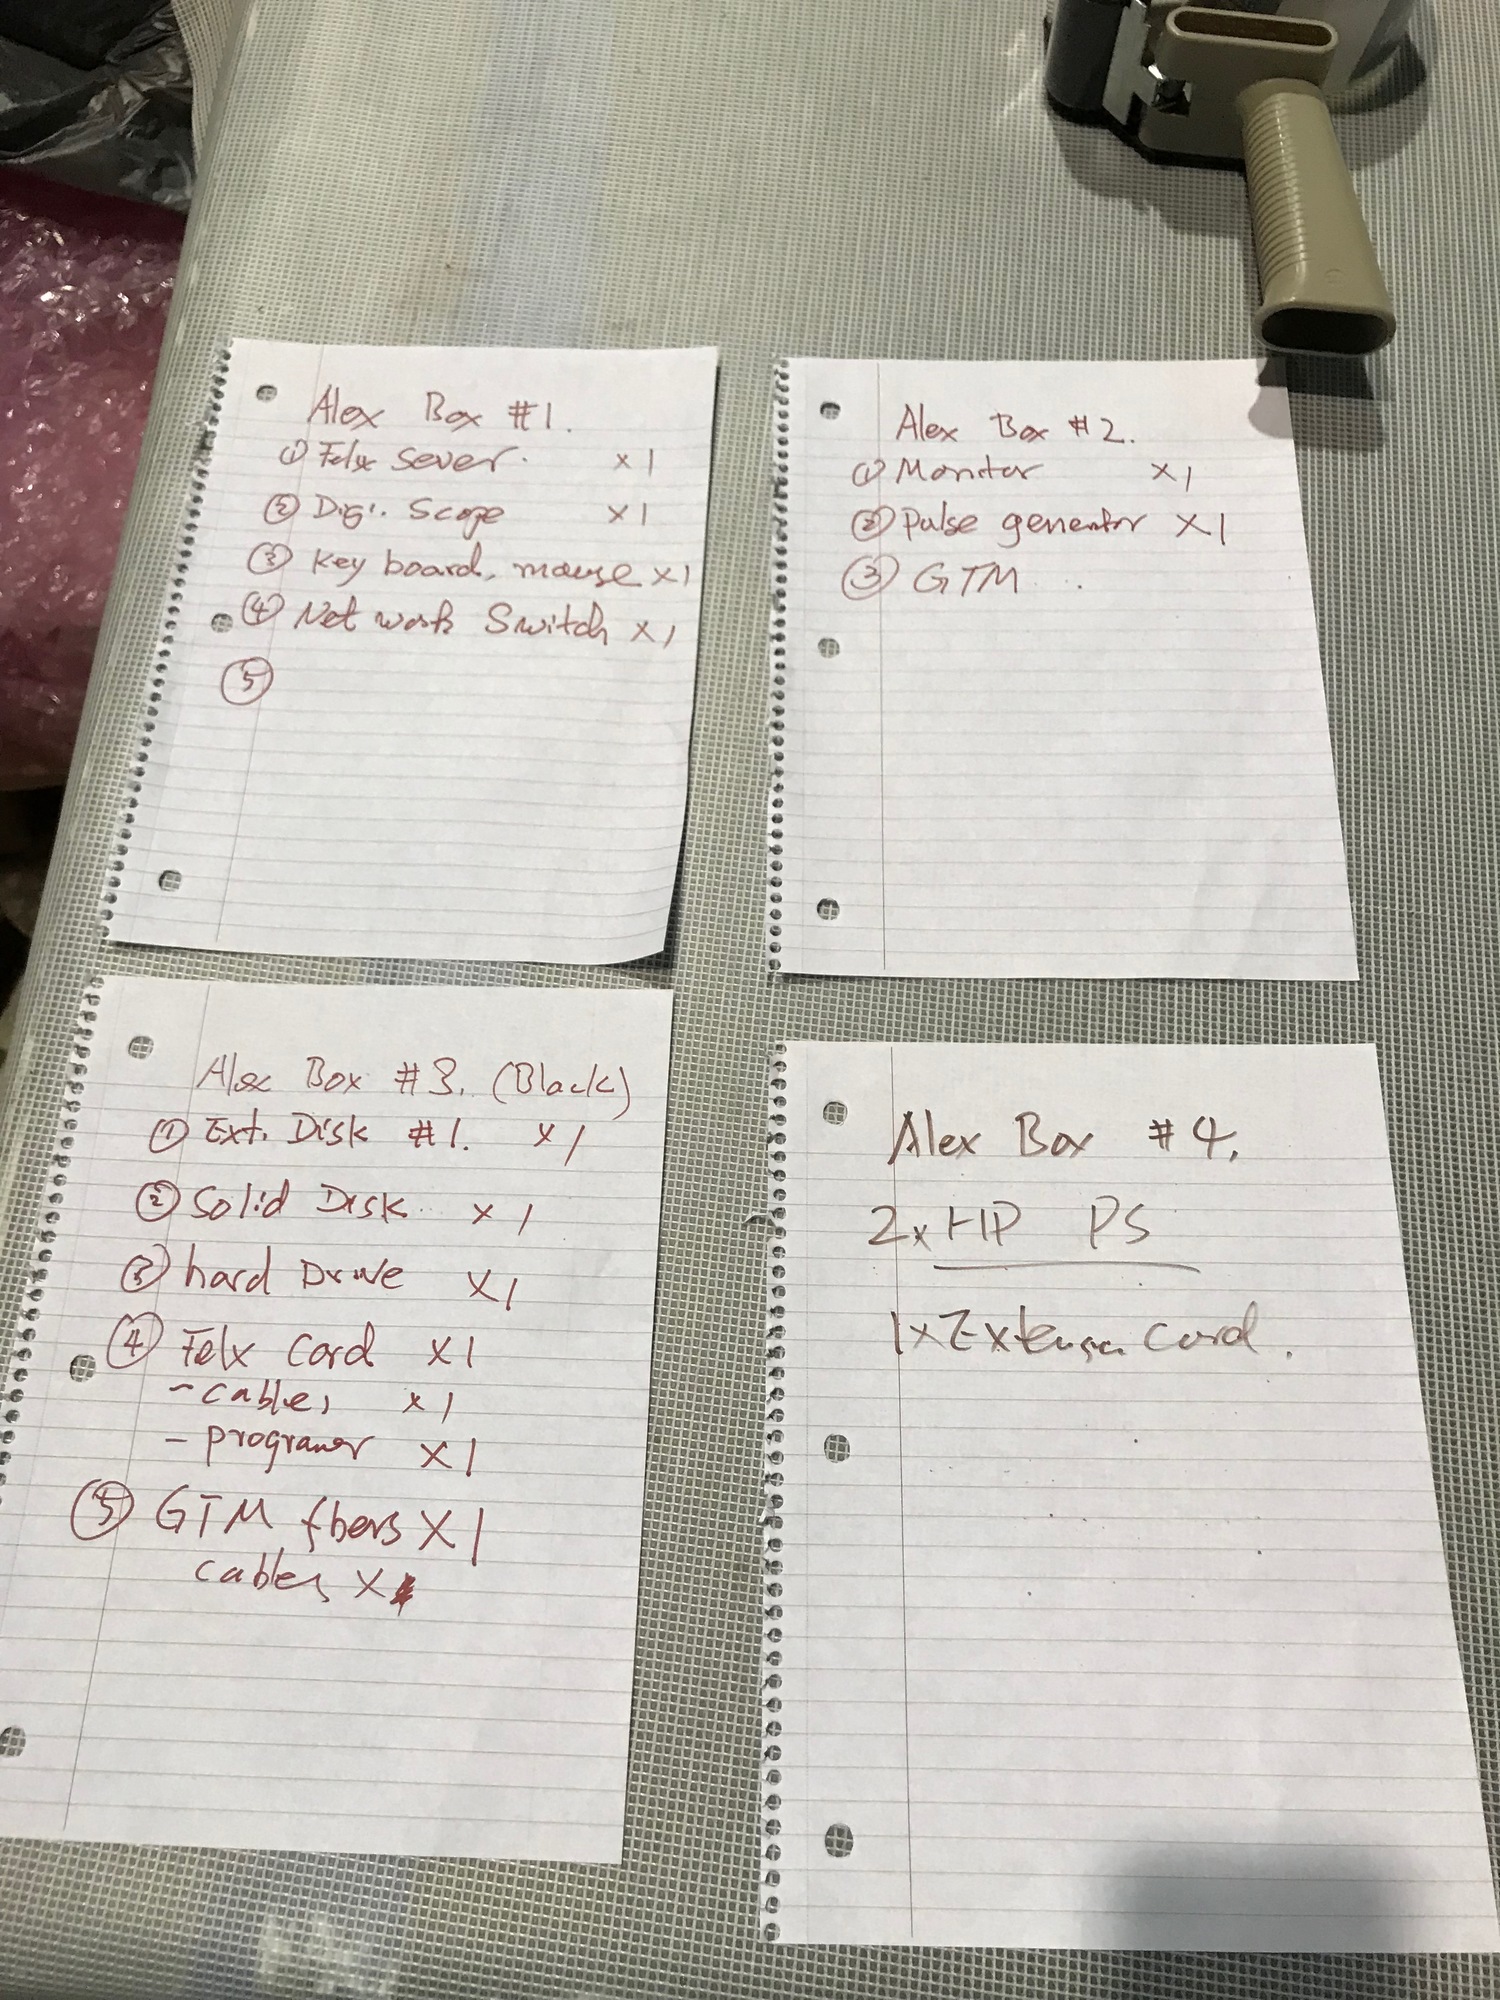 Alex Box #1.
① Felx Sever. x1
② Digi. Scope x1
③ Key board, mouse x1
④ Net work Switch x1
⑤
Alex Box #2.
① Monitor x1
② Pulse generator x1
③ GTM
Alex Box #3. (Black)
① Ext. Disk #1. x1
② Solid Disk x1
③ hard Drive x1
④ Felx Card x1
- cables x1
- programer x1
⑤ GTM fbers x1
cables x
Alex Box #4.
2x HP PS
1x Extension cord.